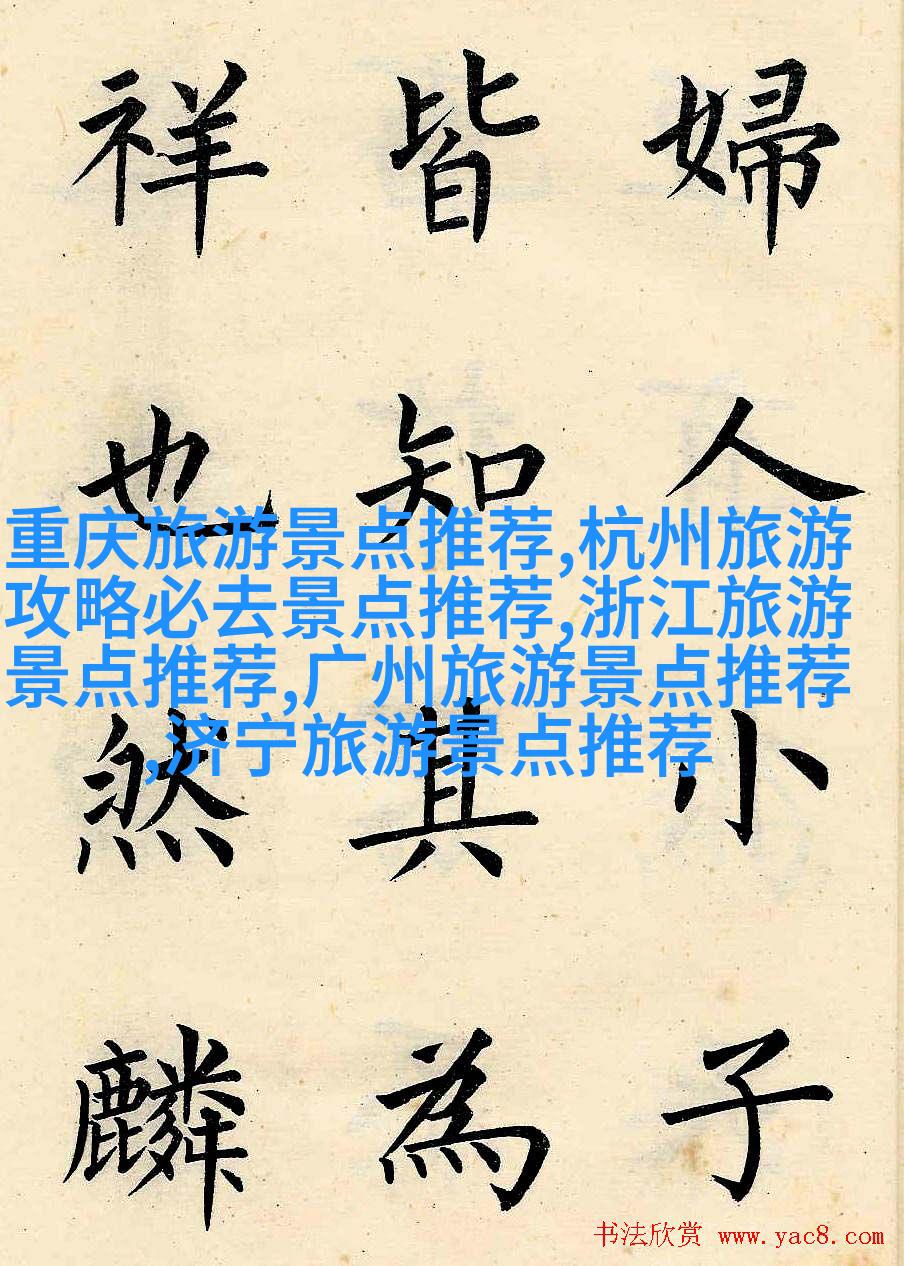 婦人小子
皆知其為
祥也然麟
重庆旅游景点推荐,杭州旅游
攻略必去景点推荐,浙江旅游
景点推荐,广州旅游景点推荐
,济宁旅游景点推荐
书法欣赏 www.yac8.com